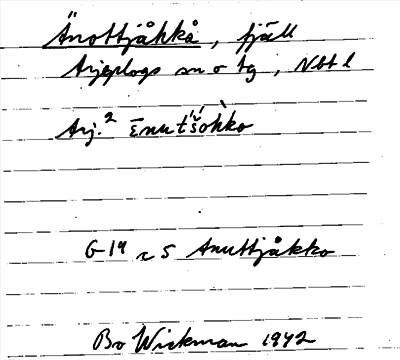 Änottjåhkå, fjäll
Arjeplogs sn o tg, Nbt l
Arj.² Ēnutšohko
G 19 r 5 Anuttjåkko
Bo Wickman 1942